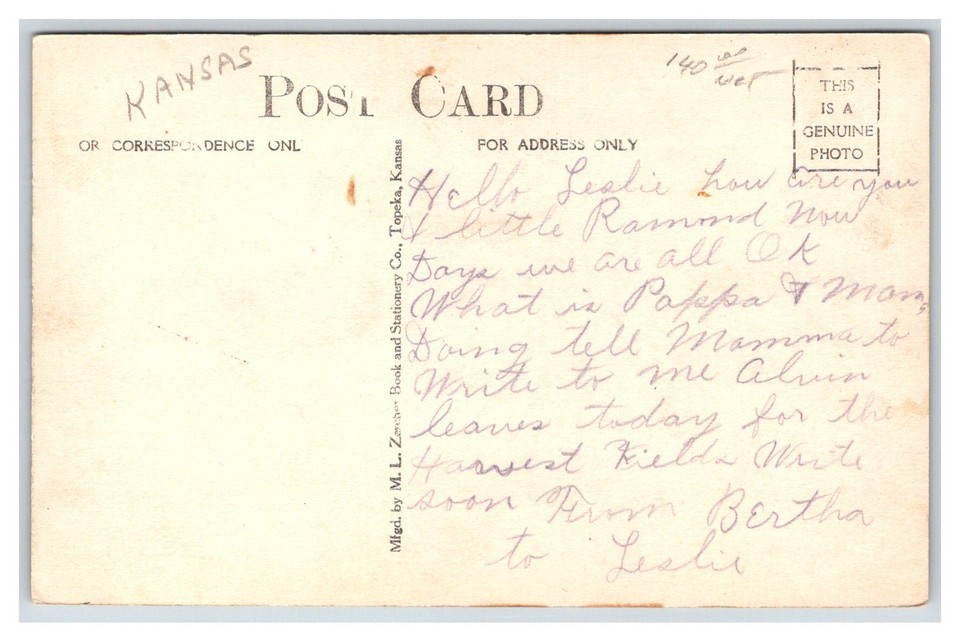 KANSAS
POST CARD
140
THIS
IS A
GENUINE
PHOTO
OR CORRESPONDENCE ONL
FOR ADDRESS ONLY
Mfgd. by M. L. Zercher Book and Stationery Co., Topeka, Kansas
Hello Leslie how are you
& little Ramond now
Days we are all OK
What is Pappa & Mama
Doing tell Mamma to
Write to me Alvin
leaves today for the
Harvest Fields Write
soon From Bertha
to Leslie